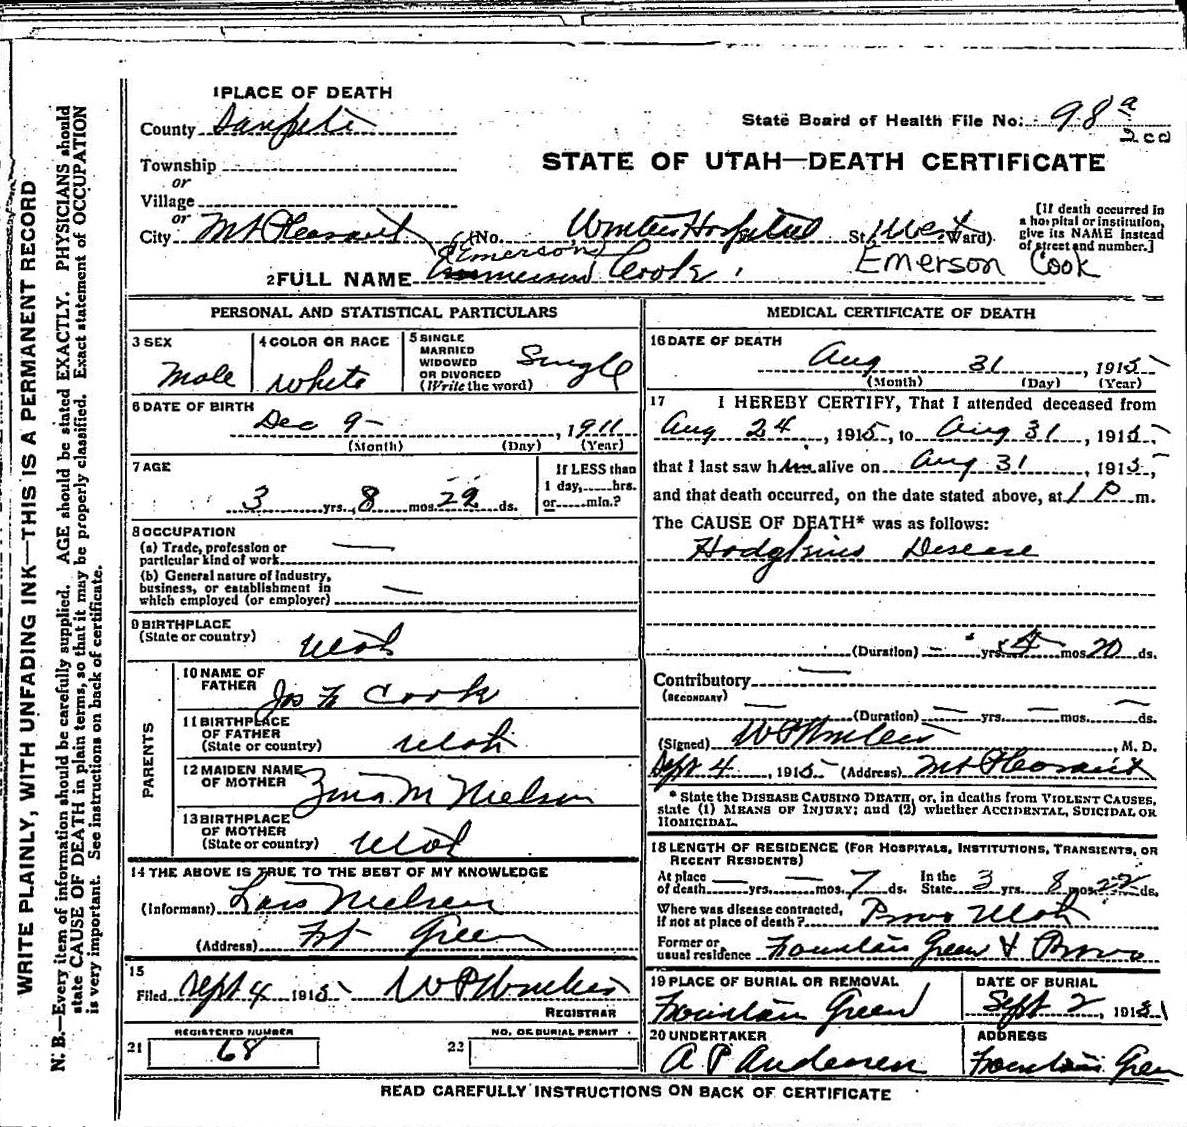 WRITE PLAINLY, WITH UNFADING INK—THIS IS A PERMANENT RECORD
N. B.—Every item of information should be carefully supplied. AGE should be stated EXACTLY. PHYSICIANS should
state CAUSE OF DEATH in plain terms, so that it may be properly classified. Exact statement of OCCUPATION
is very important. See instructions on back of certificate.
1 PLACE OF DEATH
County Sanpete
State Board of Health File No. 98 a
2cd
STATE OF UTAH—DEATH CERTIFICATE
Township
or
Village
or
City Mt Pleasant (No. Hospital St. West Ward)
[If death occurred in
a hospital or institution,
give its NAME instead
of street and number.]
(Emerson)
Emerson Cook
2 FULL NAME Cook
PERSONAL AND STATISTICAL PARTICULARS
3 SEX
Male
4 COLOR OR RACE
White
5 SINGLE
MARRIED
WIDOWED
OR DIVORCED
(Write the word)
Single
6 DATE OF BIRTH
Dec 9 - , 1911
(Month) (Day) (Year)
7 AGE
3 yrs. 8 mos. 22 ds.
If LESS than
1 day, hrs.
or min.?
8 OCCUPATION
(a) Trade, profession or
particular kind of work —
(b) General nature of industry,
business, or establishment in
which employed (or employer) —
9 BIRTHPLACE
(State or country) Utah
PARENTS
10 NAME OF
FATHER Jos F Cook
11 BIRTHPLACE
OF FATHER
(State or country) Utah
12 MAIDEN NAME
OF MOTHER Zina M Nielson
13 BIRTHPLACE
OF MOTHER
(State or country) Utah
14 THE ABOVE IS TRUE TO THE BEST OF MY KNOWLEDGE
(Informant) Lars Nielsen
(Address) Ft Green
15
Filed Sept 4 1915
REGISTRAR
REGISTERED NUMBER
21 68
NO. OF BURIAL PERMIT
22
MEDICAL CERTIFICATE OF DEATH
16 DATE OF DEATH
Aug 31 , 1915
(Month) (Day) (Year)
17 I HEREBY CERTIFY, That I attended deceased from
Aug 24 , 1915, to Aug 31 , 1915,
that I last saw him alive on Aug 31 , 1915,
and that death occurred, on the date stated above, at 1 P m.
The CAUSE OF DEATH* was as follows:
Hodgkins Desease
(Duration) — yrs. 4 mos. 20 ds.
Contributory —
(SECONDARY)
— (Duration) — yrs. — mos. — ds.
(Signed) , M. D.
Sept 4 , 1915 (Address) Mt Pleasant
* State the DISEASE CAUSING DEATH, or, in deaths from VIOLENT CAUSES,
state (1) MEANS OF INJURY; and (2) whether ACCIDENTAL, SUICIDAL OR
HOMICIDAL.
18 LENGTH OF RESIDENCE (FOR HOSPITALS, INSTITUTIONS, TRANSIENTS, OR
RECENT RESIDENTS)
At place
of death — yrs. — mos. 7 ds. In the
State 3 yrs. 8 mos. 22 ds.
Where was disease contracted,
if not at place of death? Provo Utah
Former or
usual residence Fountain Green & Provo
19 PLACE OF BURIAL OR REMOVAL
Fountain Green
DATE OF BURIAL
Sept 2 , 1915
20 UNDERTAKER
A P Andersen
ADDRESS
Fountain Green
READ CAREFULLY INSTRUCTIONS ON BACK OF CERTIFICATE